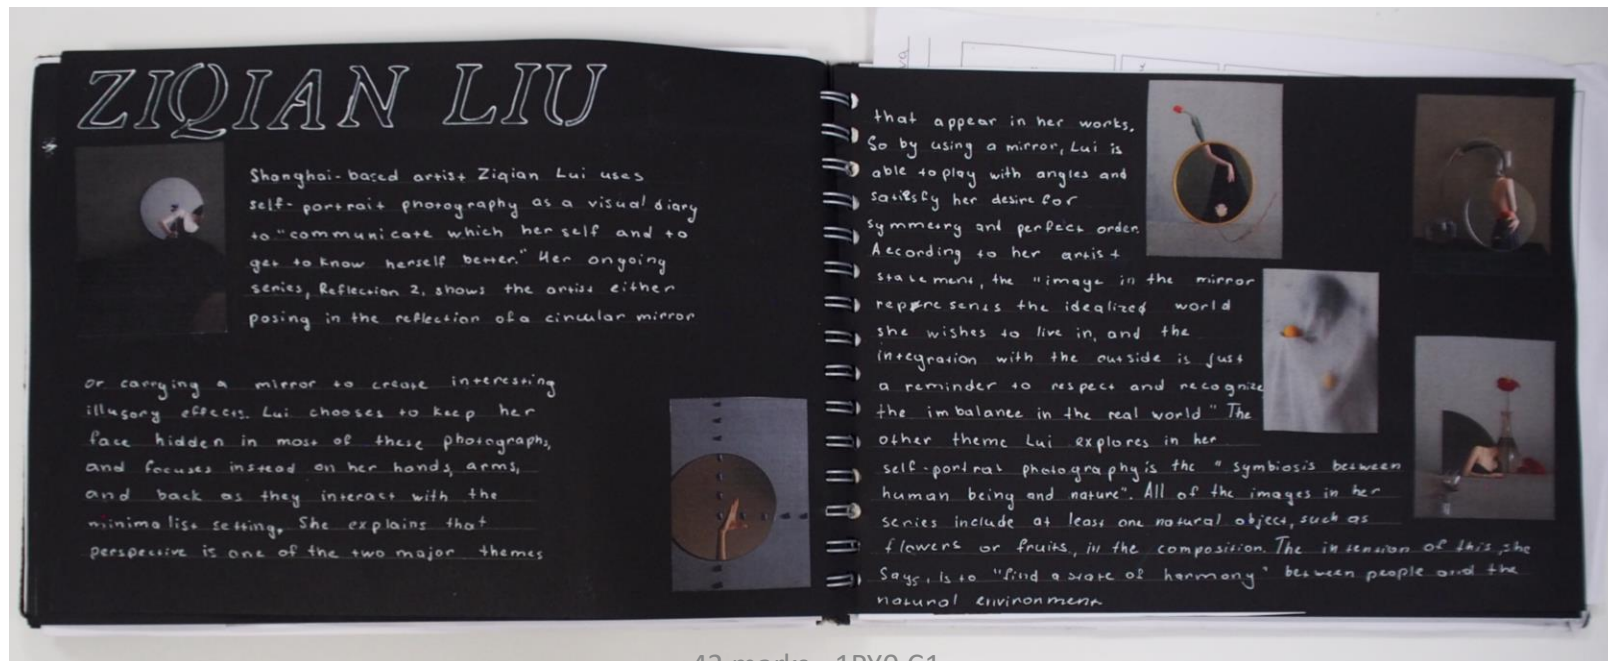 ZIQIAN LIU
Shanghai-based artist Ziqian Lui uses
self-portrait photography as a visual diary
to "communicate which her self and to
get to know herself better." Her ongoing
series, Reflection 2, shows the artist either
posing in the reflection of a circular mirror
or carrying a mirror to create interesting
illusory effects. Lui chooses to keep her
face hidden in most of these photographs,
and focuses instead on her hands, arms,
and back as they interact with the
minimalist setting. She explains that
perspective is one of the two major themes
that appear in her works.
So by using a mirror, Lui is
able to play with angles and
satisfy her desire for
symmetry and perfect order.
According to her artist
statement, the "image in the mirror
represents the idealized world
she wishes to live in, and the
integration with the outside is just
a reminder to respect and recognize
the imbalance in the real world" The
other theme Lui explores in her
self-portrat photography is the "symbiosis between
human being and nature". All of the images in her
series include at least one natural object, such as
flowers or fruits, in the composition. The intension of this, she
says, is to "find a state of harmony" between people and the
natural environment